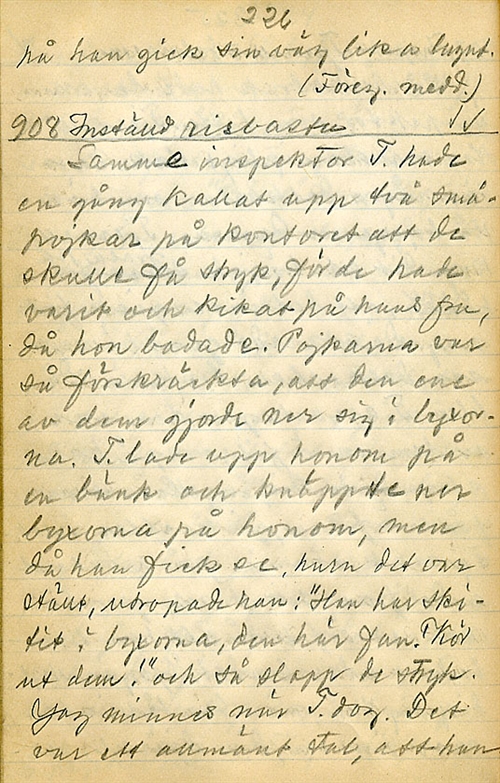 226
på han gick sin väg lika lugnt.
(Föreg. medd.)
908 Inställd risbastu
Samme inspektor T. hade
en gång kallat upp två små-
pojkar på kontoret att de
skulle få stryk, för de hade
varit och kikat på hans fru,
då hon badade. Pojkarna var
så förskräckta, att den ene
av dem gjorde ner sig i byxor-
na. T. lade upp honom på
en bänk och knäppte ner
byxorna på honom, men
då han fick se, huru det var
ställt, utropade han: "Han har ski-
tit i byxorna, den här fan. Kör
ut dem!" och så slapp de stryk.
Jag minnes när T. dog. Det
var ett allmänt tal, att han